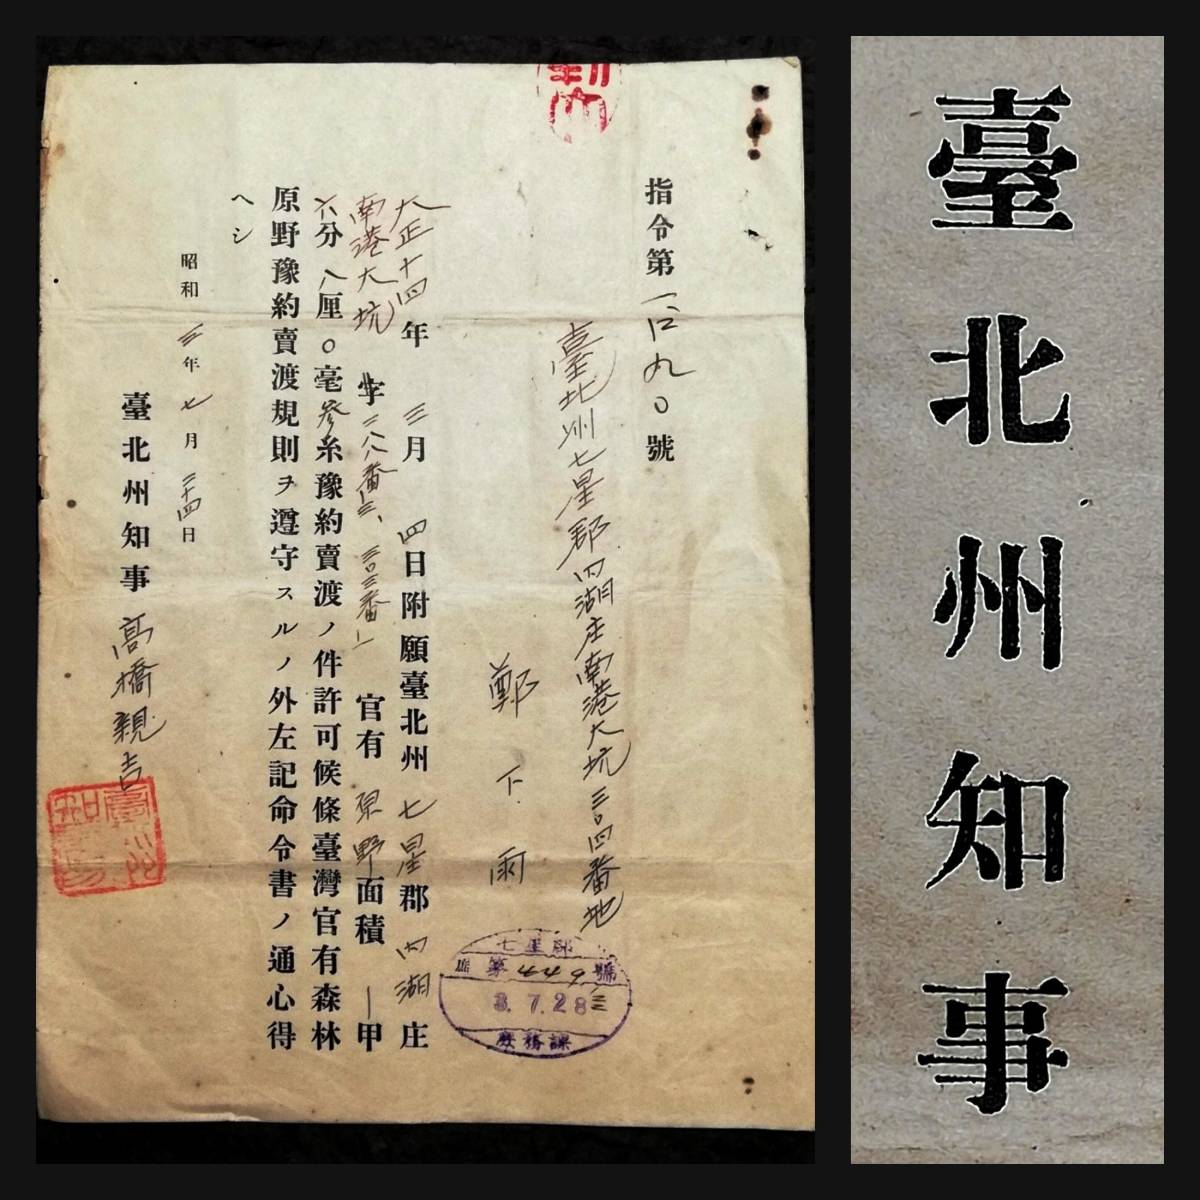 指令第一、仁九〇號
臺北州七星郡內湖庄南港大坑三〇四番地
鄭下雨
大正十四年三月四日附願臺北州七星郡內湖庄
南港大坑字二八八番ノ三、三〇三番ノ一官有原野面積一甲
六分八厘〇毫參糸豫約賣渡ノ件許可候條臺灣官有森林
原野豫約賣渡規則ヲ遵守スルノ外左記命令書ノ通心得
ヘシ
昭和三年七月二十四日
臺北州知事高橋親吉
七星郡
第449號
3.7.28
庶務課
臺北州知事